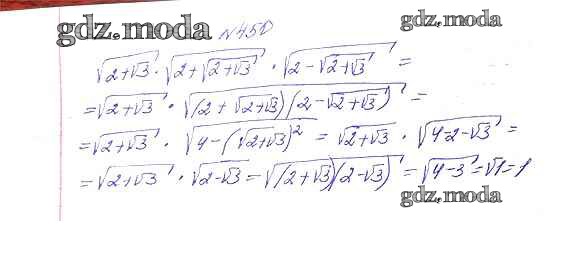 gdz.moda
gdz.moda
N450
√(2+√3) · √(2+√(2+√3)) · √(2-√(2+√3)) =
= √(2+√3) · √((2+√(2+√3))(2-√(2+√3))) =
= √(2+√3) · √(4-(√(2+√3))²) = √(2+√3) · √(4-2-√3) =
= √(2+√3) · √(2-√3) = √((2+√3)(2-√3)) = √(4-3) = √1 = 1
gdz.moda